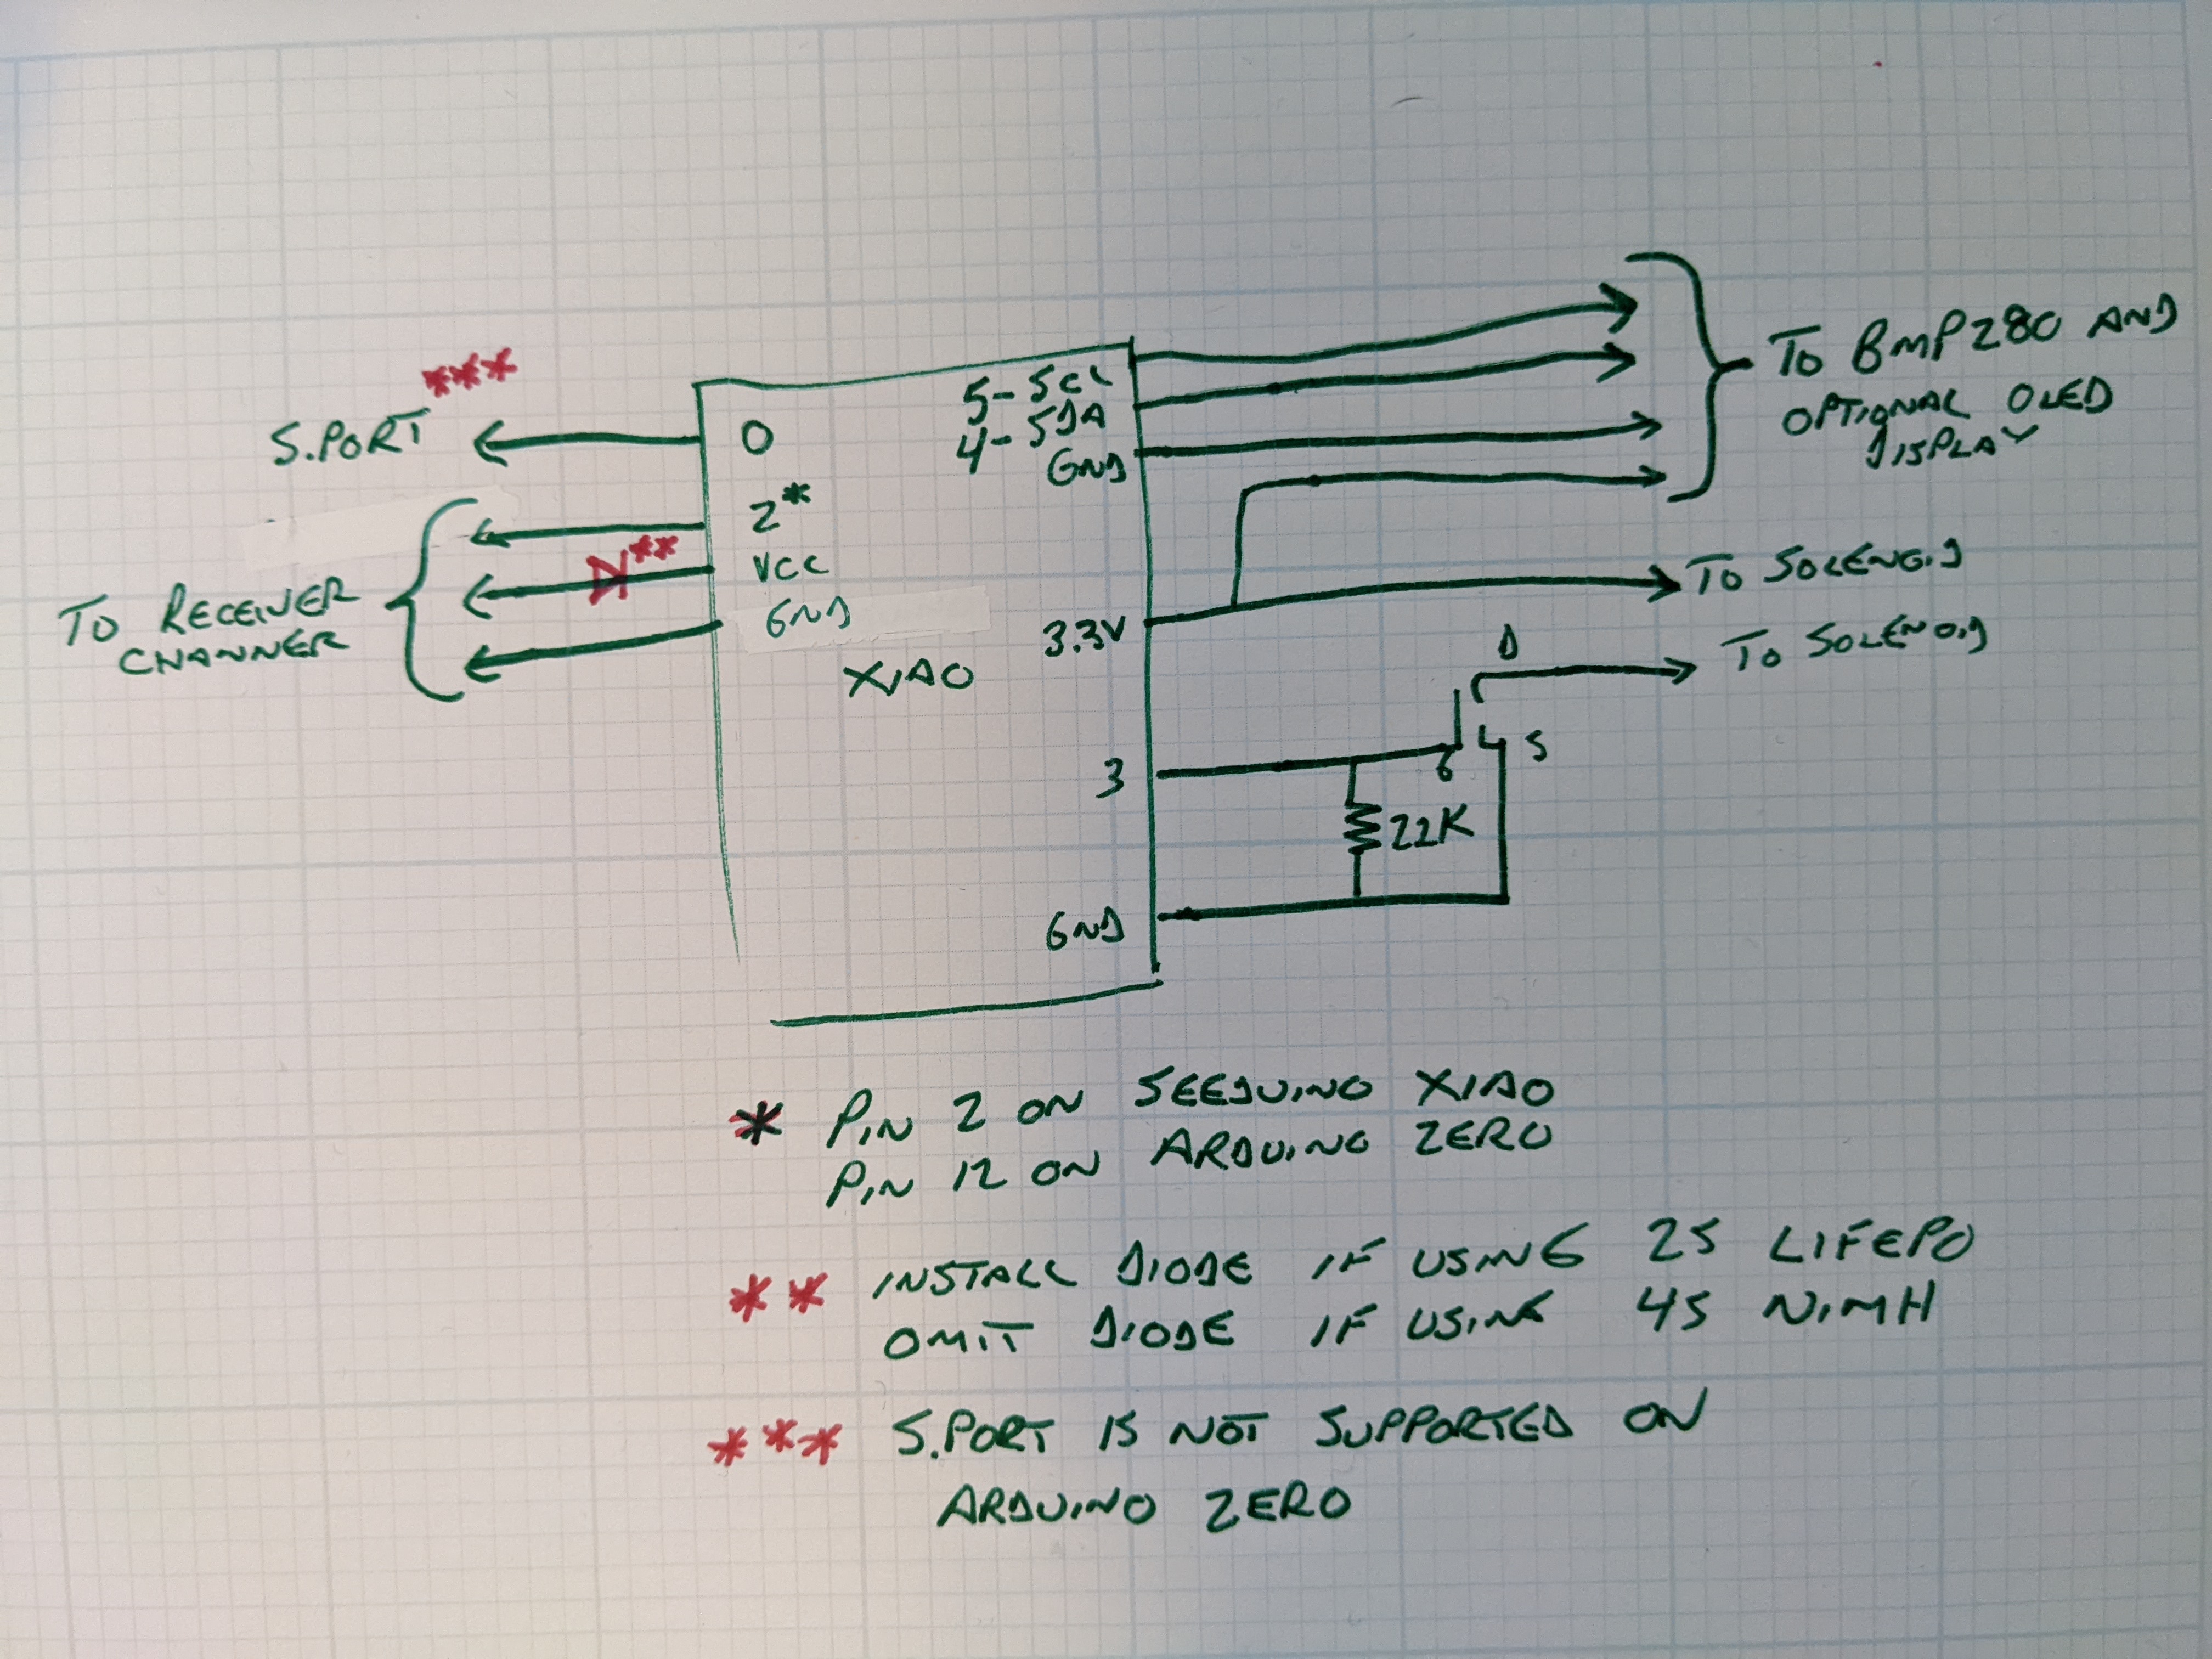 S.PORT ***
TO RECEIVER
CHANNER
0
2*
VCC
**
GND
XIAO
5-SCL
4-SDA
GND
3.3V
3
GND
TO BMP280 AND
OPTIONAL OLED
DISPLAY
TO SOLENOID
D
TO SOLENOID
G
S
22K
* PIN 2 ON SEEDUINO XIAO
PIN 12 ON ARDUINO ZERO
** INSTALL DIODE IF USING 2S LIFEPO
OMIT DIODE IF USING 4S NIMH
*** S.PORT IS NOT SUPPORTED ON
ARDUINO ZERO